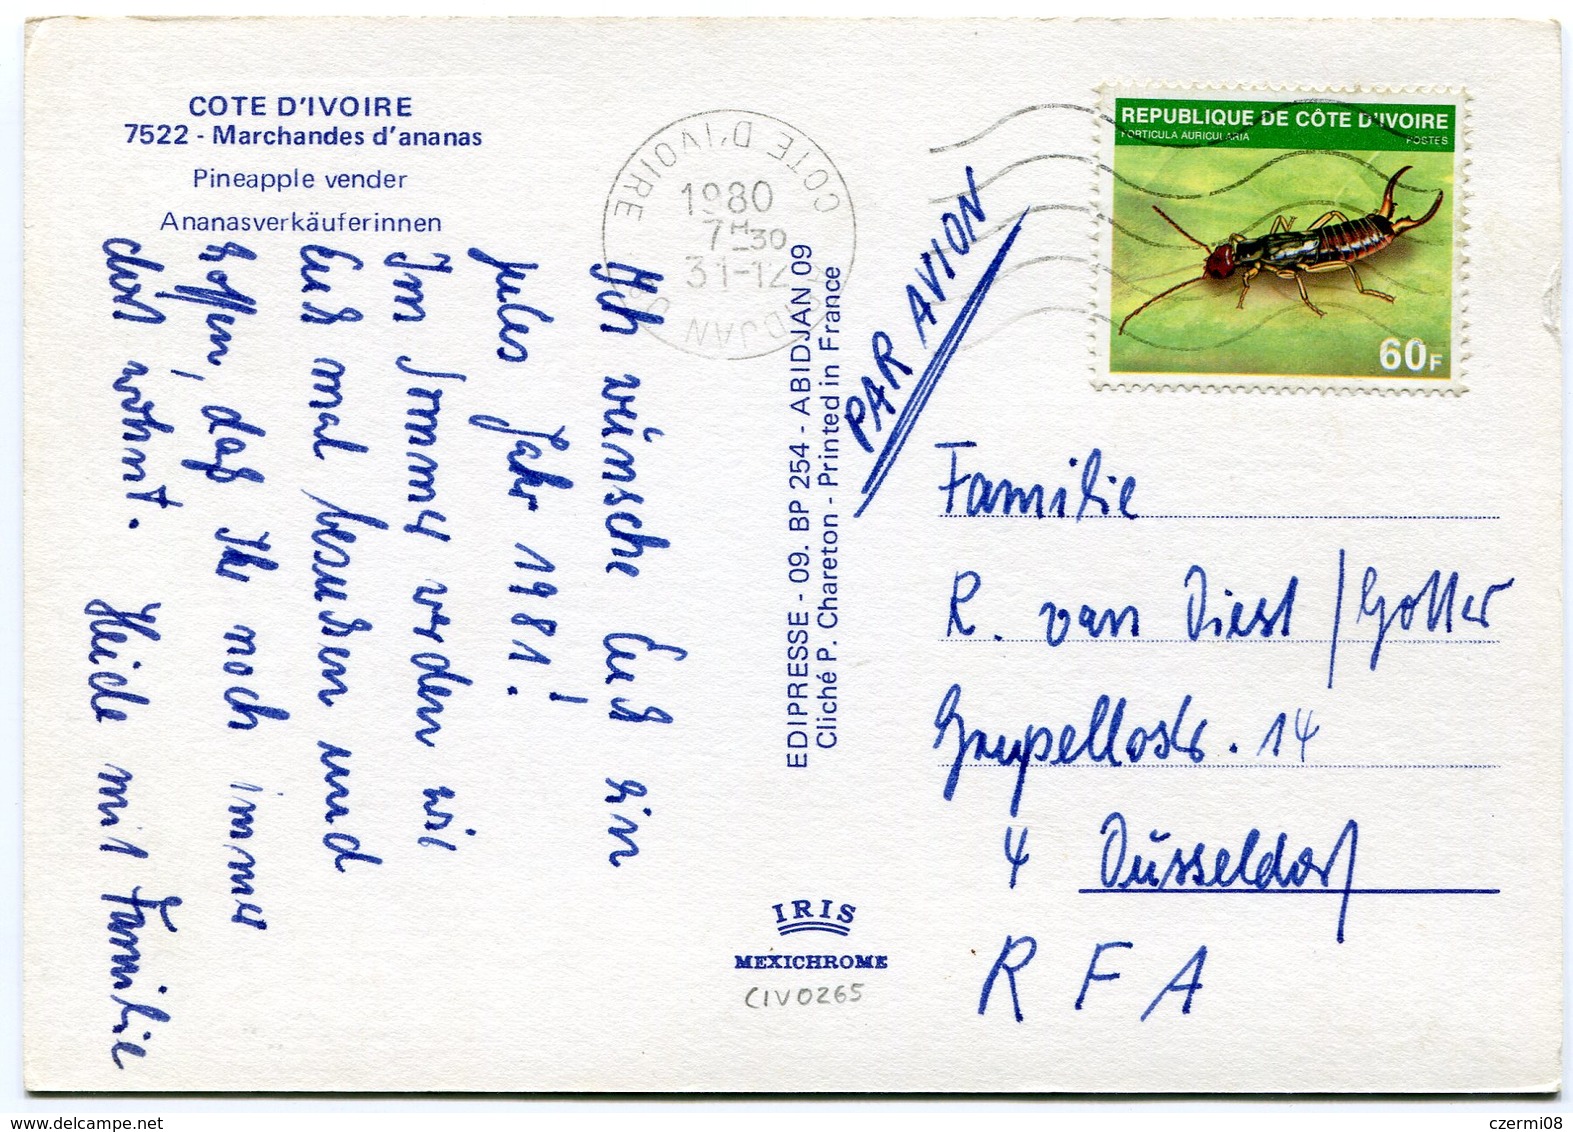 COTE D'IVOIRE
7522 - Marchandes d'ananas
Pineapple vender
Ananasverkäuferinnen
Ich wünsche Euch ein
gutes Jahr 1981!
Im Sommer werden wir
Euch mal besuchen und
hoffen, daß Ihr noch immer
dort wohnt.
Heide mit Familie
COTE D'IVOIRE
1980
7H30
31-12
ABIDJAN
COTE D'IVOIRE
EDIPRESSE - 09. BP 254 - ABIDJAN 09
Cliché P. Chareton - Printed in France
PAR AVION
REPUBLIQUE DE CÔTE D'IVOIRE
FORTICULA AURICULARIA
POSTES
60F
Familie
R. van Diest / Gotter
Grupellostr. 14
4 Düsseldorf
R F A
IRIS
MEXICHROME
CIV0265
www.delcampe.net
czermi08